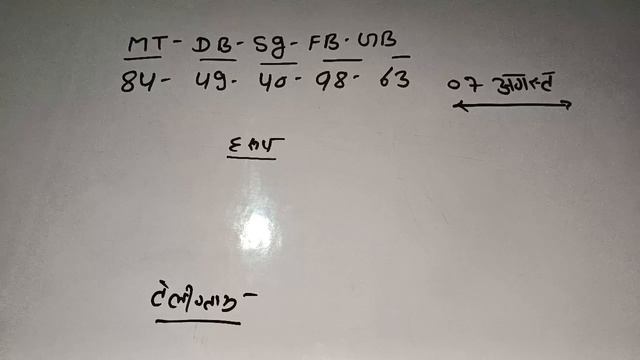 MT - DB - Sg - FB - GB
84 - 49 - 40 - 98 - 63
07 अगस्त